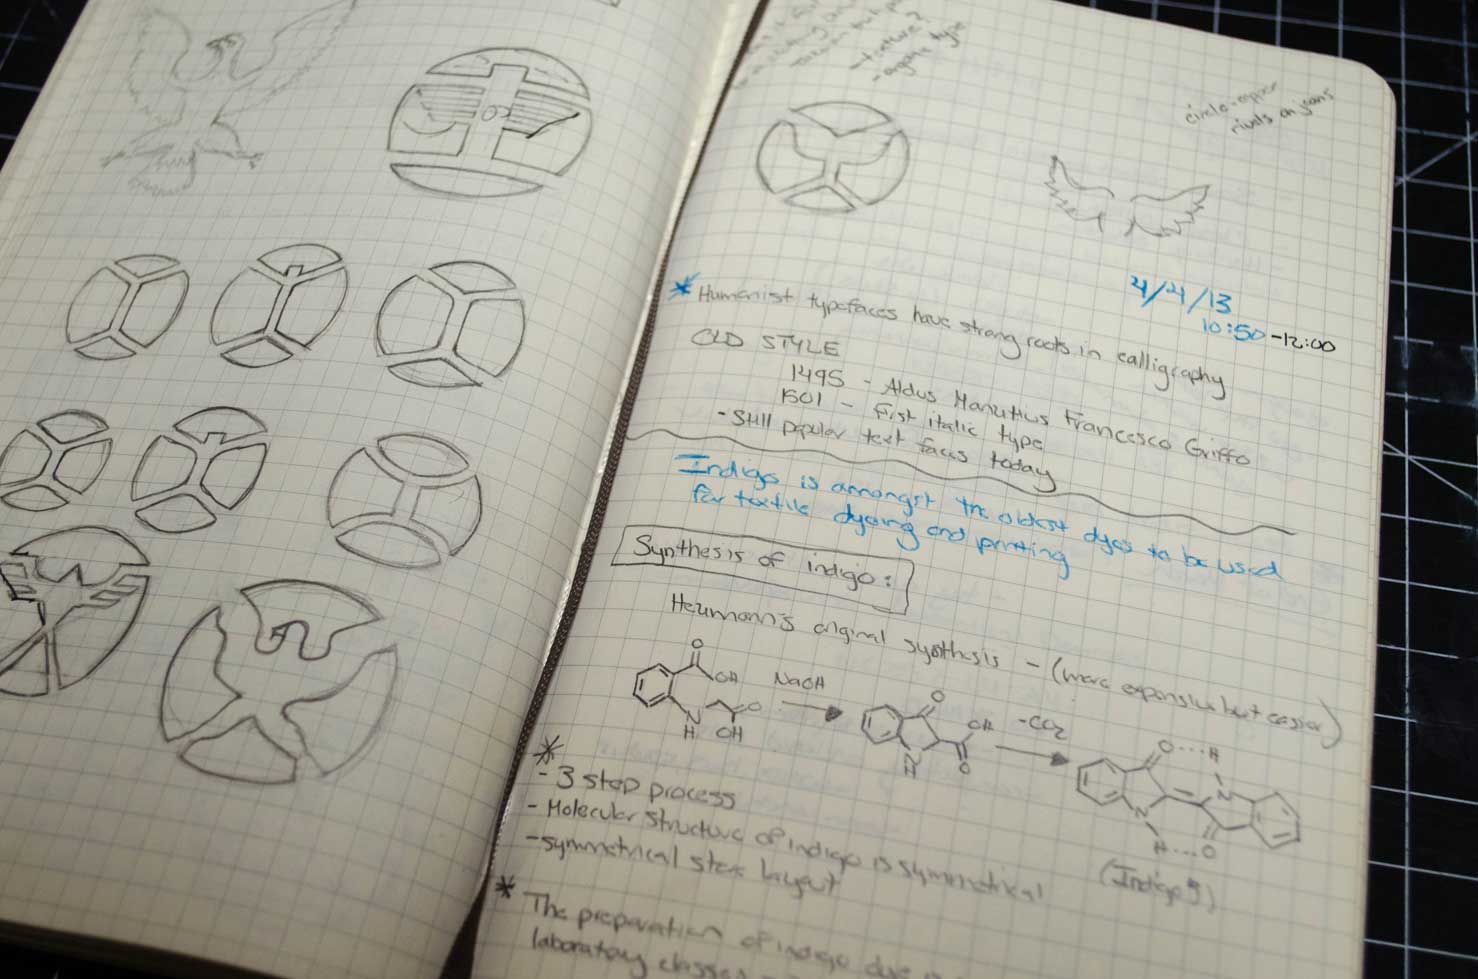 - texture ?
- organic type
circle-
rivets on jeans
4/4/13
10:50-12:00
* Humanist typefaces have strong roots in calligraphy
OLD STYLE
1495 - Aldus Manutius Francesco Griffo
1501 - First italic type
- Still popular text faces today
Indigo is amongst the oldest dyes to be used
for textile dyeing and printing
Synthesis of indigo:
Heumann's original synthesis - (more expensive but easier)
O
OH
N
H
O
OH
NaOH
O
OH
O
N
H
-CO2
O
H
N
N
H
O
(Indigo)
*
- 3 step process
- Molecular structure of indigo is symmetrical
- symmetrical store layout
* The preparation of indigo dye
laboratory classes